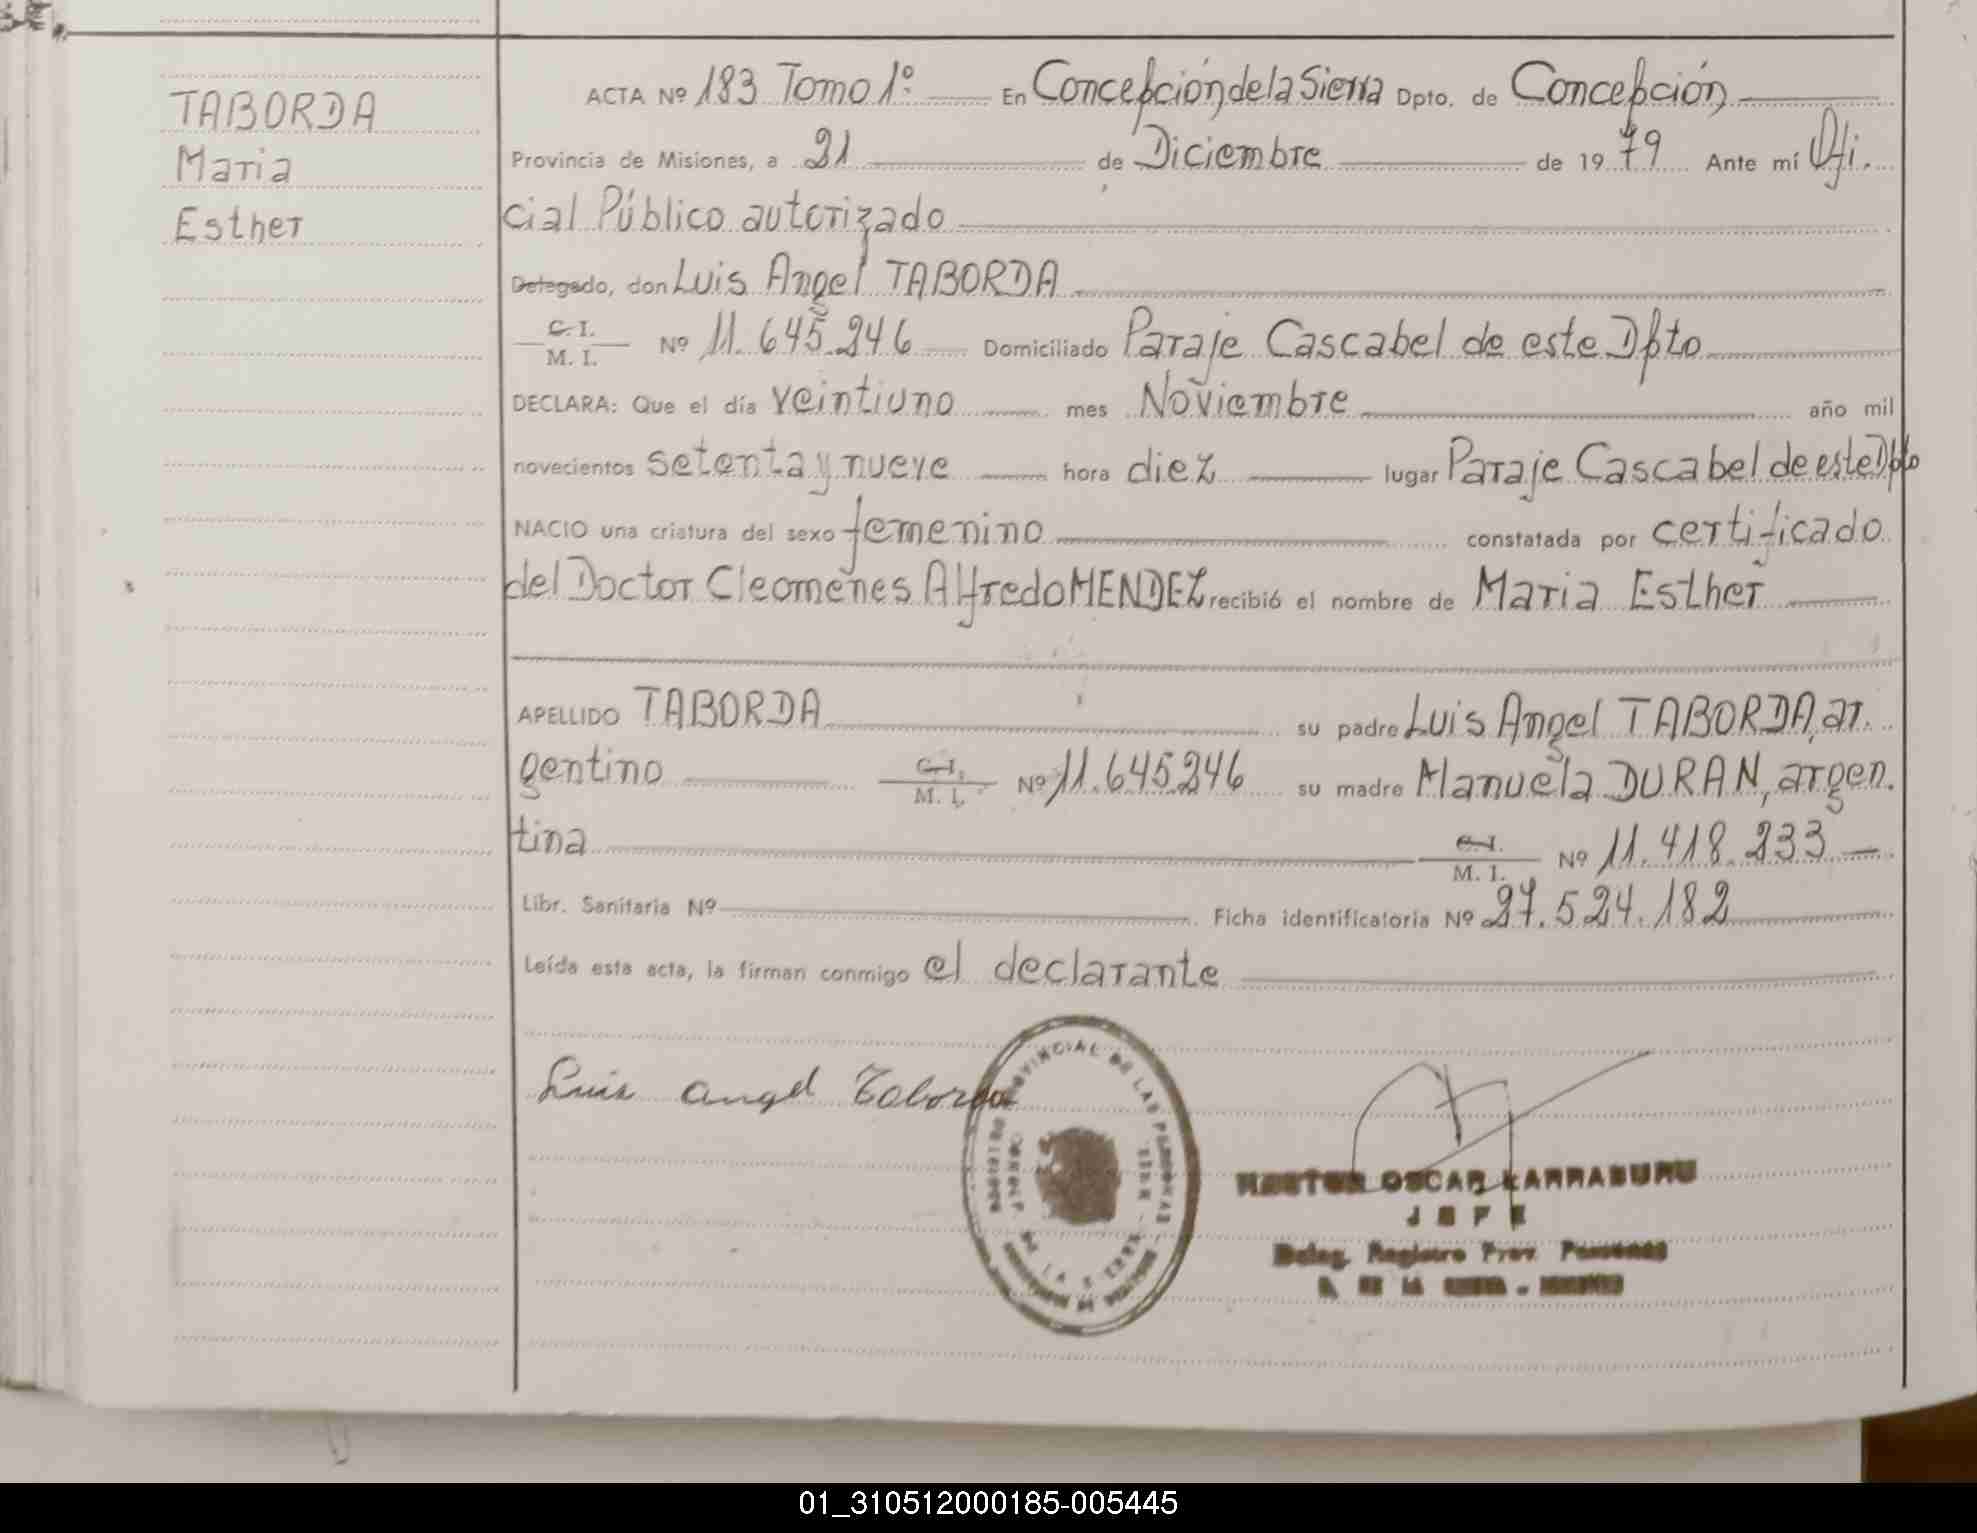 TABORDA
Maria
Esther
ACTA Nº 183 Tomo 1º En Concepción de la Sierra Dpto. de Concepción
Provincia de Misiones, a 21 de Diciembre de 1979 Ante mí Ofi.
cial Público autorizado
Delegado, don Luis Angel TABORDA
C. I.
M. I. Nº 11.645.246 Domiciliado Paraje Cascabel de este Dpto
DECLARA: Que el día veintiuno mes Noviembre año mil
novecientos setenta y nueve hora diez lugar Paraje Cascabel de este Dpto
NACIO una criatura del sexo femenino constatada por certificado
del Doctor Cleomenes Alfredo MENDEZ recibió el nombre de Maria Esther
APELLIDO TABORDA su padre Luis Angel TABORDA, ar.
gentino C. I. M. I. Nº 11.645.246 su madre Manuela DURAN, argen.
tina C. I. M. I. Nº 11.418.233
Libr. Sanitaria Nº Ficha identificatoria Nº 27.524.182
Leída esta acta, la firman conmigo el declarante
Luis Angel Taborda
PROVINCIAL DE LAS PERSONAS
DE LA SIERRA
OSCAR LARRABURU
JEFE
Deleg. Registro Prov. Personas
C. DE LA SIERRA - MISIONES
01_310512000185-005445